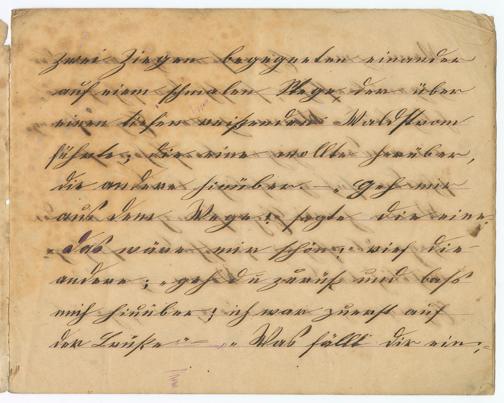 zwei Ziegen begegneten einander
auf einem schmalen Stege, der über
einen tiefen reißenden Waldstrom
führte; die eine wollte herüber,
die andere hinüber. — „Geh mir
aus dem Wege!" sagte die eine.
„Das wäre mir schön," rief die
andere; „geh du zurük und laß
mich hinüber; ich war zuerst auf
der Brüke" — „Was fällt dir ein,